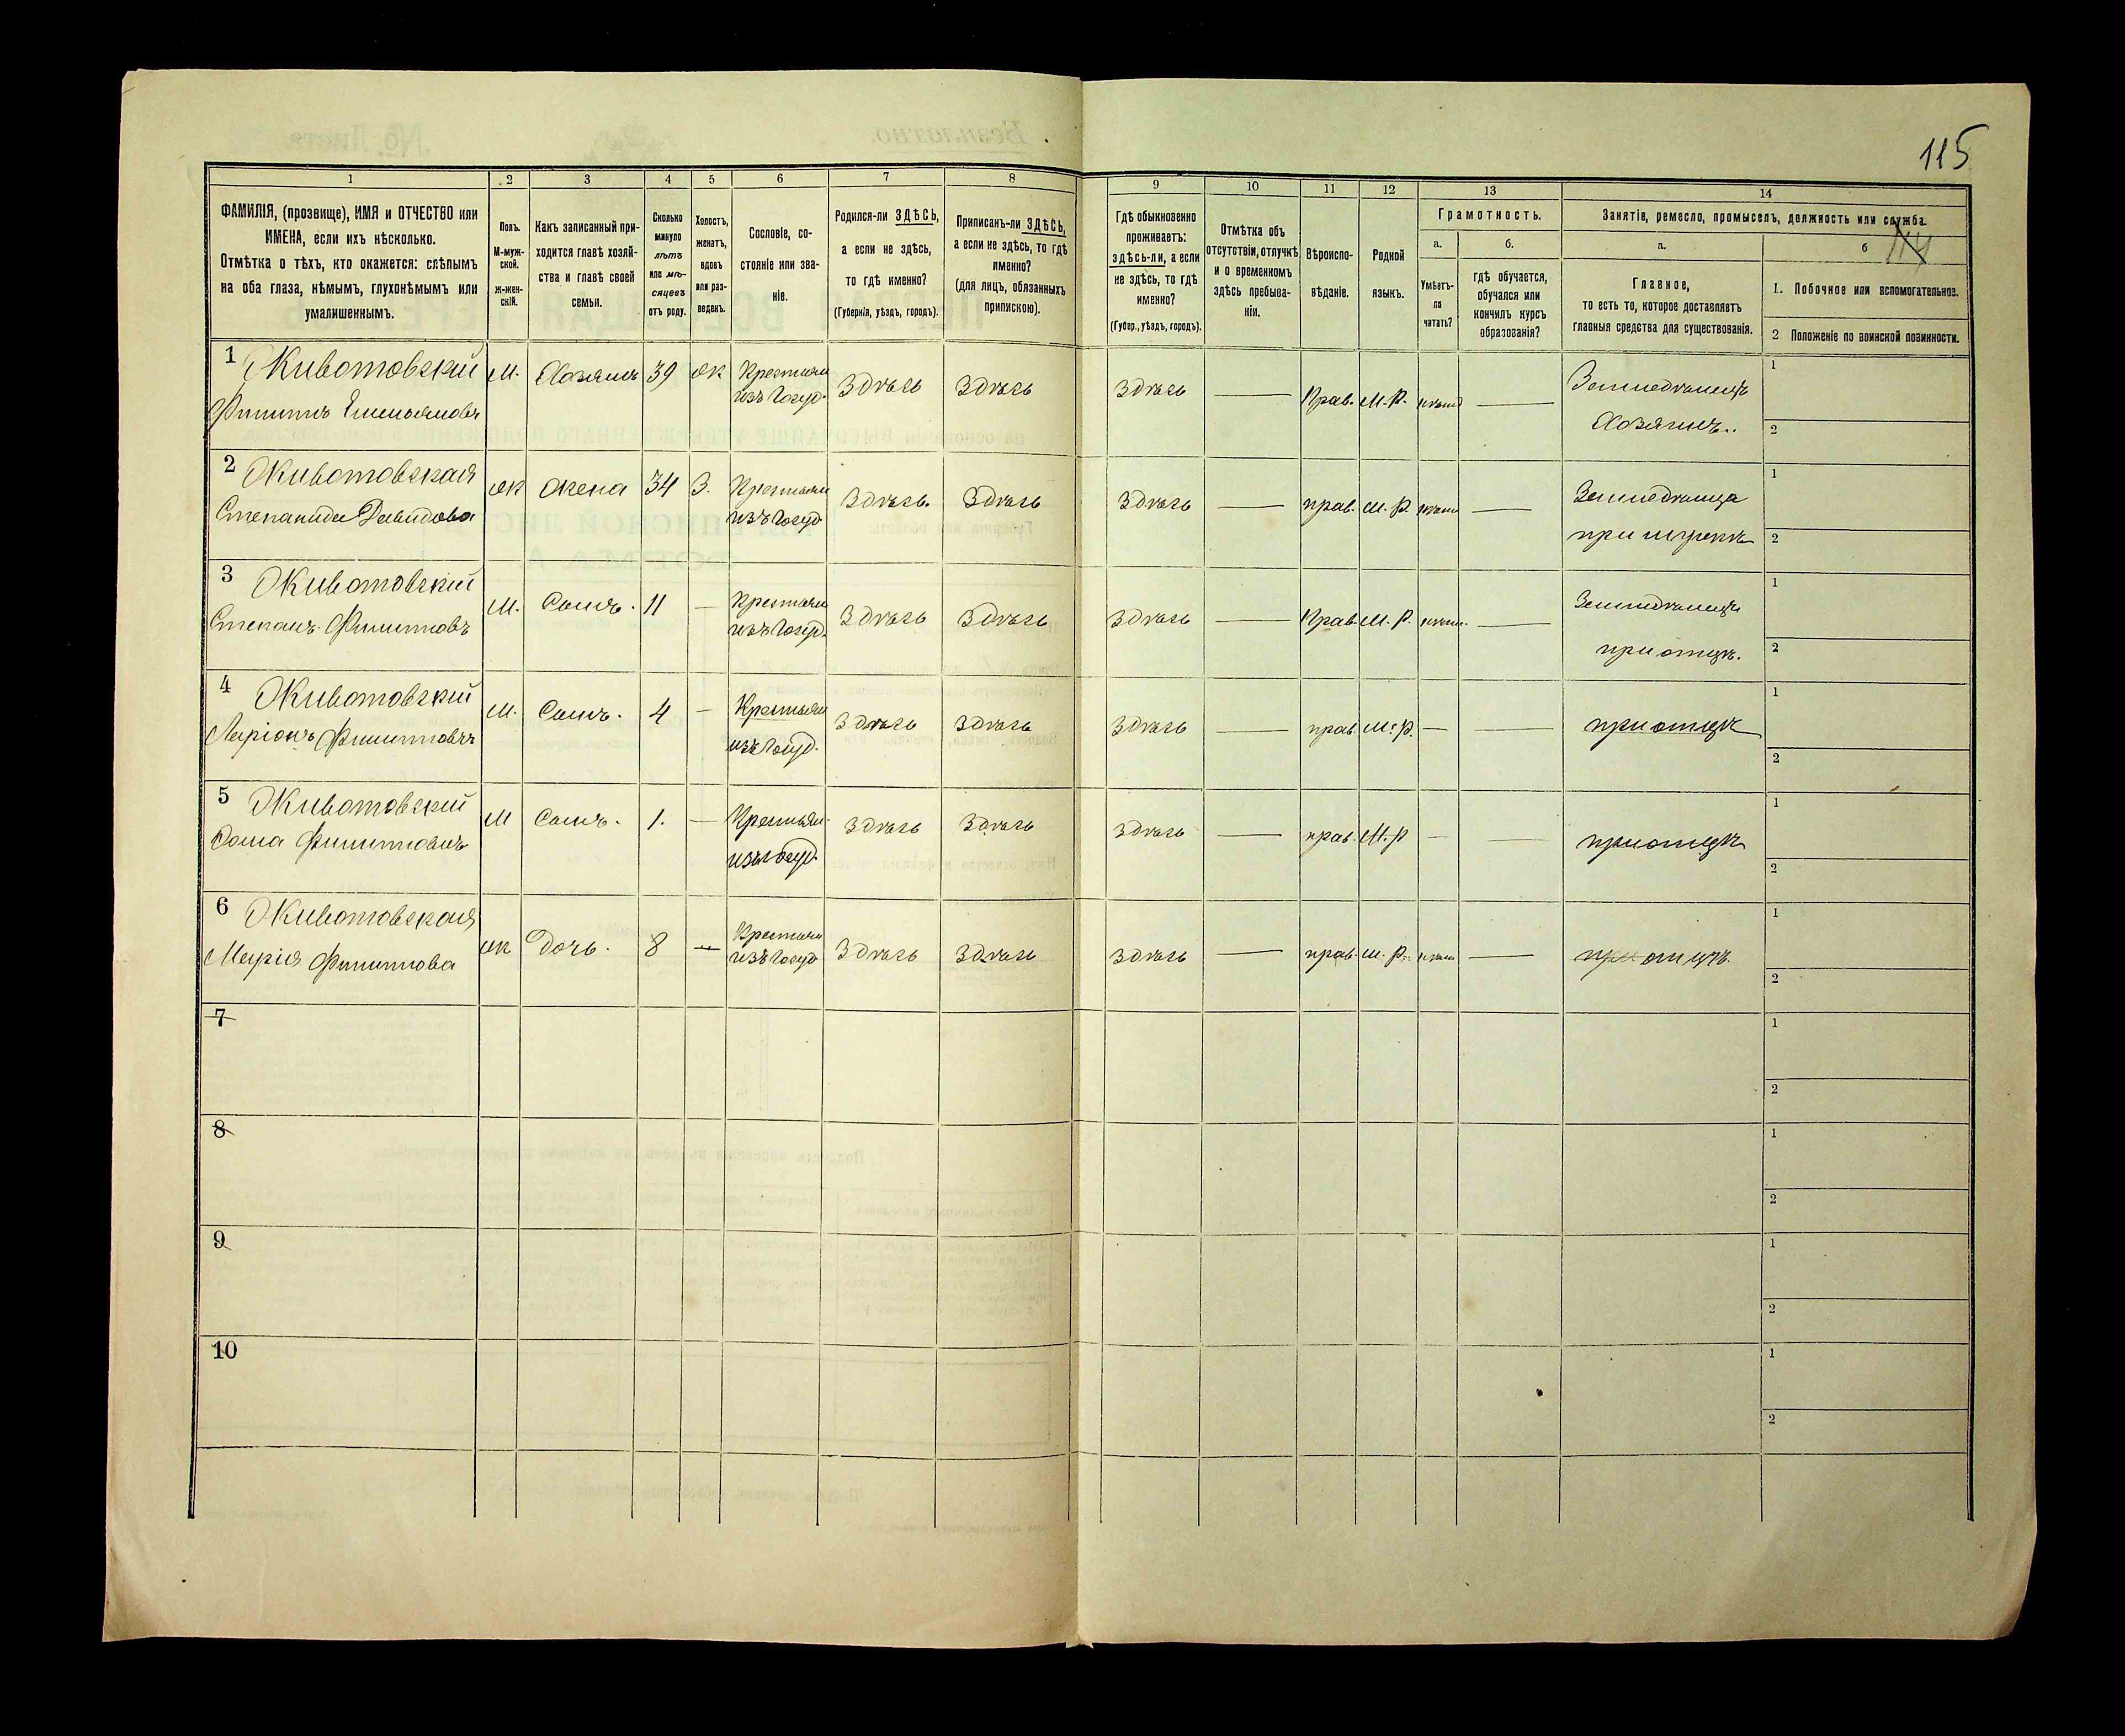 115
1 2 3 4 5 6 7 8 9 10 11 12 13 14
ФАМИЛІЯ, (прозвище), ИМЯ и ОТЧЕСТВО или
ИМЕНА, если ихъ нѣсколько.
Отмѣтка о тѣхъ, кто окажется: слѣпымъ
на оба глаза, нѣмымъ, глухонѣмымъ или
умалишеннымъ.
Полъ.
М-муж-
ской.
Ж-жен-
скій.
Какъ записанный при-
ходится главѣ хозяй-
ства и главѣ своей
семьи.
Сколько
минуло
лѣтъ
или мѣ-
сяцевъ
отъ роду.
Холостъ,
женатъ,
вдовъ
или раз-
веденъ.
Сословіе, со-
стояніе или зва-
ніе.
Родился-ли ЗДѢСЬ,
а если не здѣсь,
то гдѣ именно?
(Губернія, уѣздъ, городъ).
Приписанъ-ли ЗДѢСЬ,
а если не здѣсь, то гдѣ
именно?
(для лицъ, обязанныхъ
припискою).
Гдѣ обыкновенно
проживаетъ:
здѣсь-ли, а если
не здѣсь, то гдѣ
именно?
(Губер., уѣздъ, городъ).
Отмѣтка объ
отсутствіи, отлучкѣ
и о временномъ
здѣсь пребыва-
ніи.
Вѣроиспо-
вѣданіе.
Родной
языкъ.
Грамотность.
а.
Умѣетъ-
ли
читать?
б.
гдѣ обучается,
обучался или
кончилъ курсъ
образованія?
Занятіе, ремесло, промыселъ, должность или служба.
а.
Главное,
то есть то, которое доставляетъ
главныя средства для существованія.
б
1. Побочное или вспомогательное.
2 Положеніе по воинской повинности.
1 Животовский М. Хозяинъ 39 ж Крестьян Здѣсь Здѣсь Здѣсь — Прав. М.Р. — Земледѣлецъ 1
Филиппъ Емельяновъ изъ Госуд. Хозяинъ.. 2
2 Животовская ж жена 34 З. Крестьян Здѣсь. Здѣсь Здѣсь — прав. М.Р. — Земледѣлица 1
Степанида Давидова изъ Госуд. при 2
3 Животовский М. Сынъ. 11 — Крестьян Здѣсь Здѣсь Здѣсь — Прав. М.Р. — Земледѣлецъ 1
Степанъ Филипповъ изъ Госуд. при отцѣ. 2
4 Животовский М. Сынъ. 4 — Крестьян Здѣсь Здѣсь Здѣсь — прав. М.Р. — — при отцѣ 1
Ларіонъ Филипповъ изъ Госуд. 2
5 Животовский М Сынъ. 1. — Крестьян Здѣсь Здѣсь Здѣсь — прав. М.Р — — при отцѣ 1
Фома Филипповъ изъ Госуд. 2
6 Животовская ж Дочь. 8 — Крестьян Здѣсь Здѣсь Здѣсь — прав. М.Р. — при отцѣ. 1
Марія Филиппова изъ Госуд 2
7 1
2
8 1
2
9 1
2
10 1
2